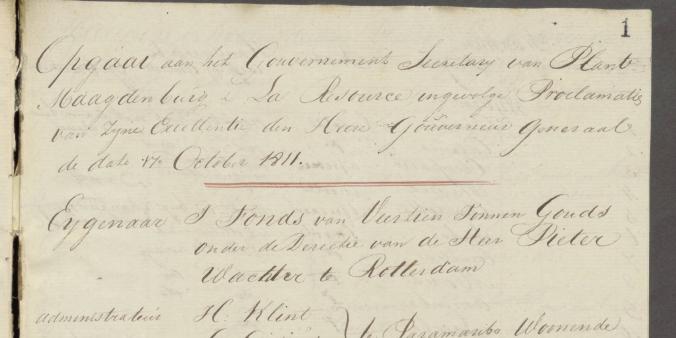 1
Opgaar aan het Gouvernement Secretary van Plant
Maagdenburg & La Resource ingevolge Proclamatie
van Zyne Excellentie den Heere Gouverneur Generaal
de dato 17 October 1811.
Eygenaar 'T Fonds van Veertien Tonnen Gouds
onder de Directie van de Heer Pieter
Wachter te Rotterdam
administrateur H: Klint
te Paramaribo Woonende